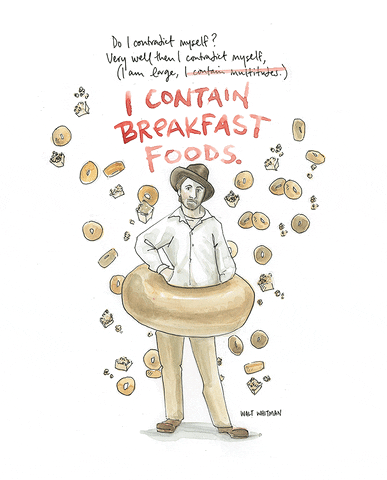 Do I contradict myself?
Very well then I contradict myself,
(I am large, I contain multitudes.)
I CONTAIN
BREAKFAST
FOODS.
WALT WHITMAN